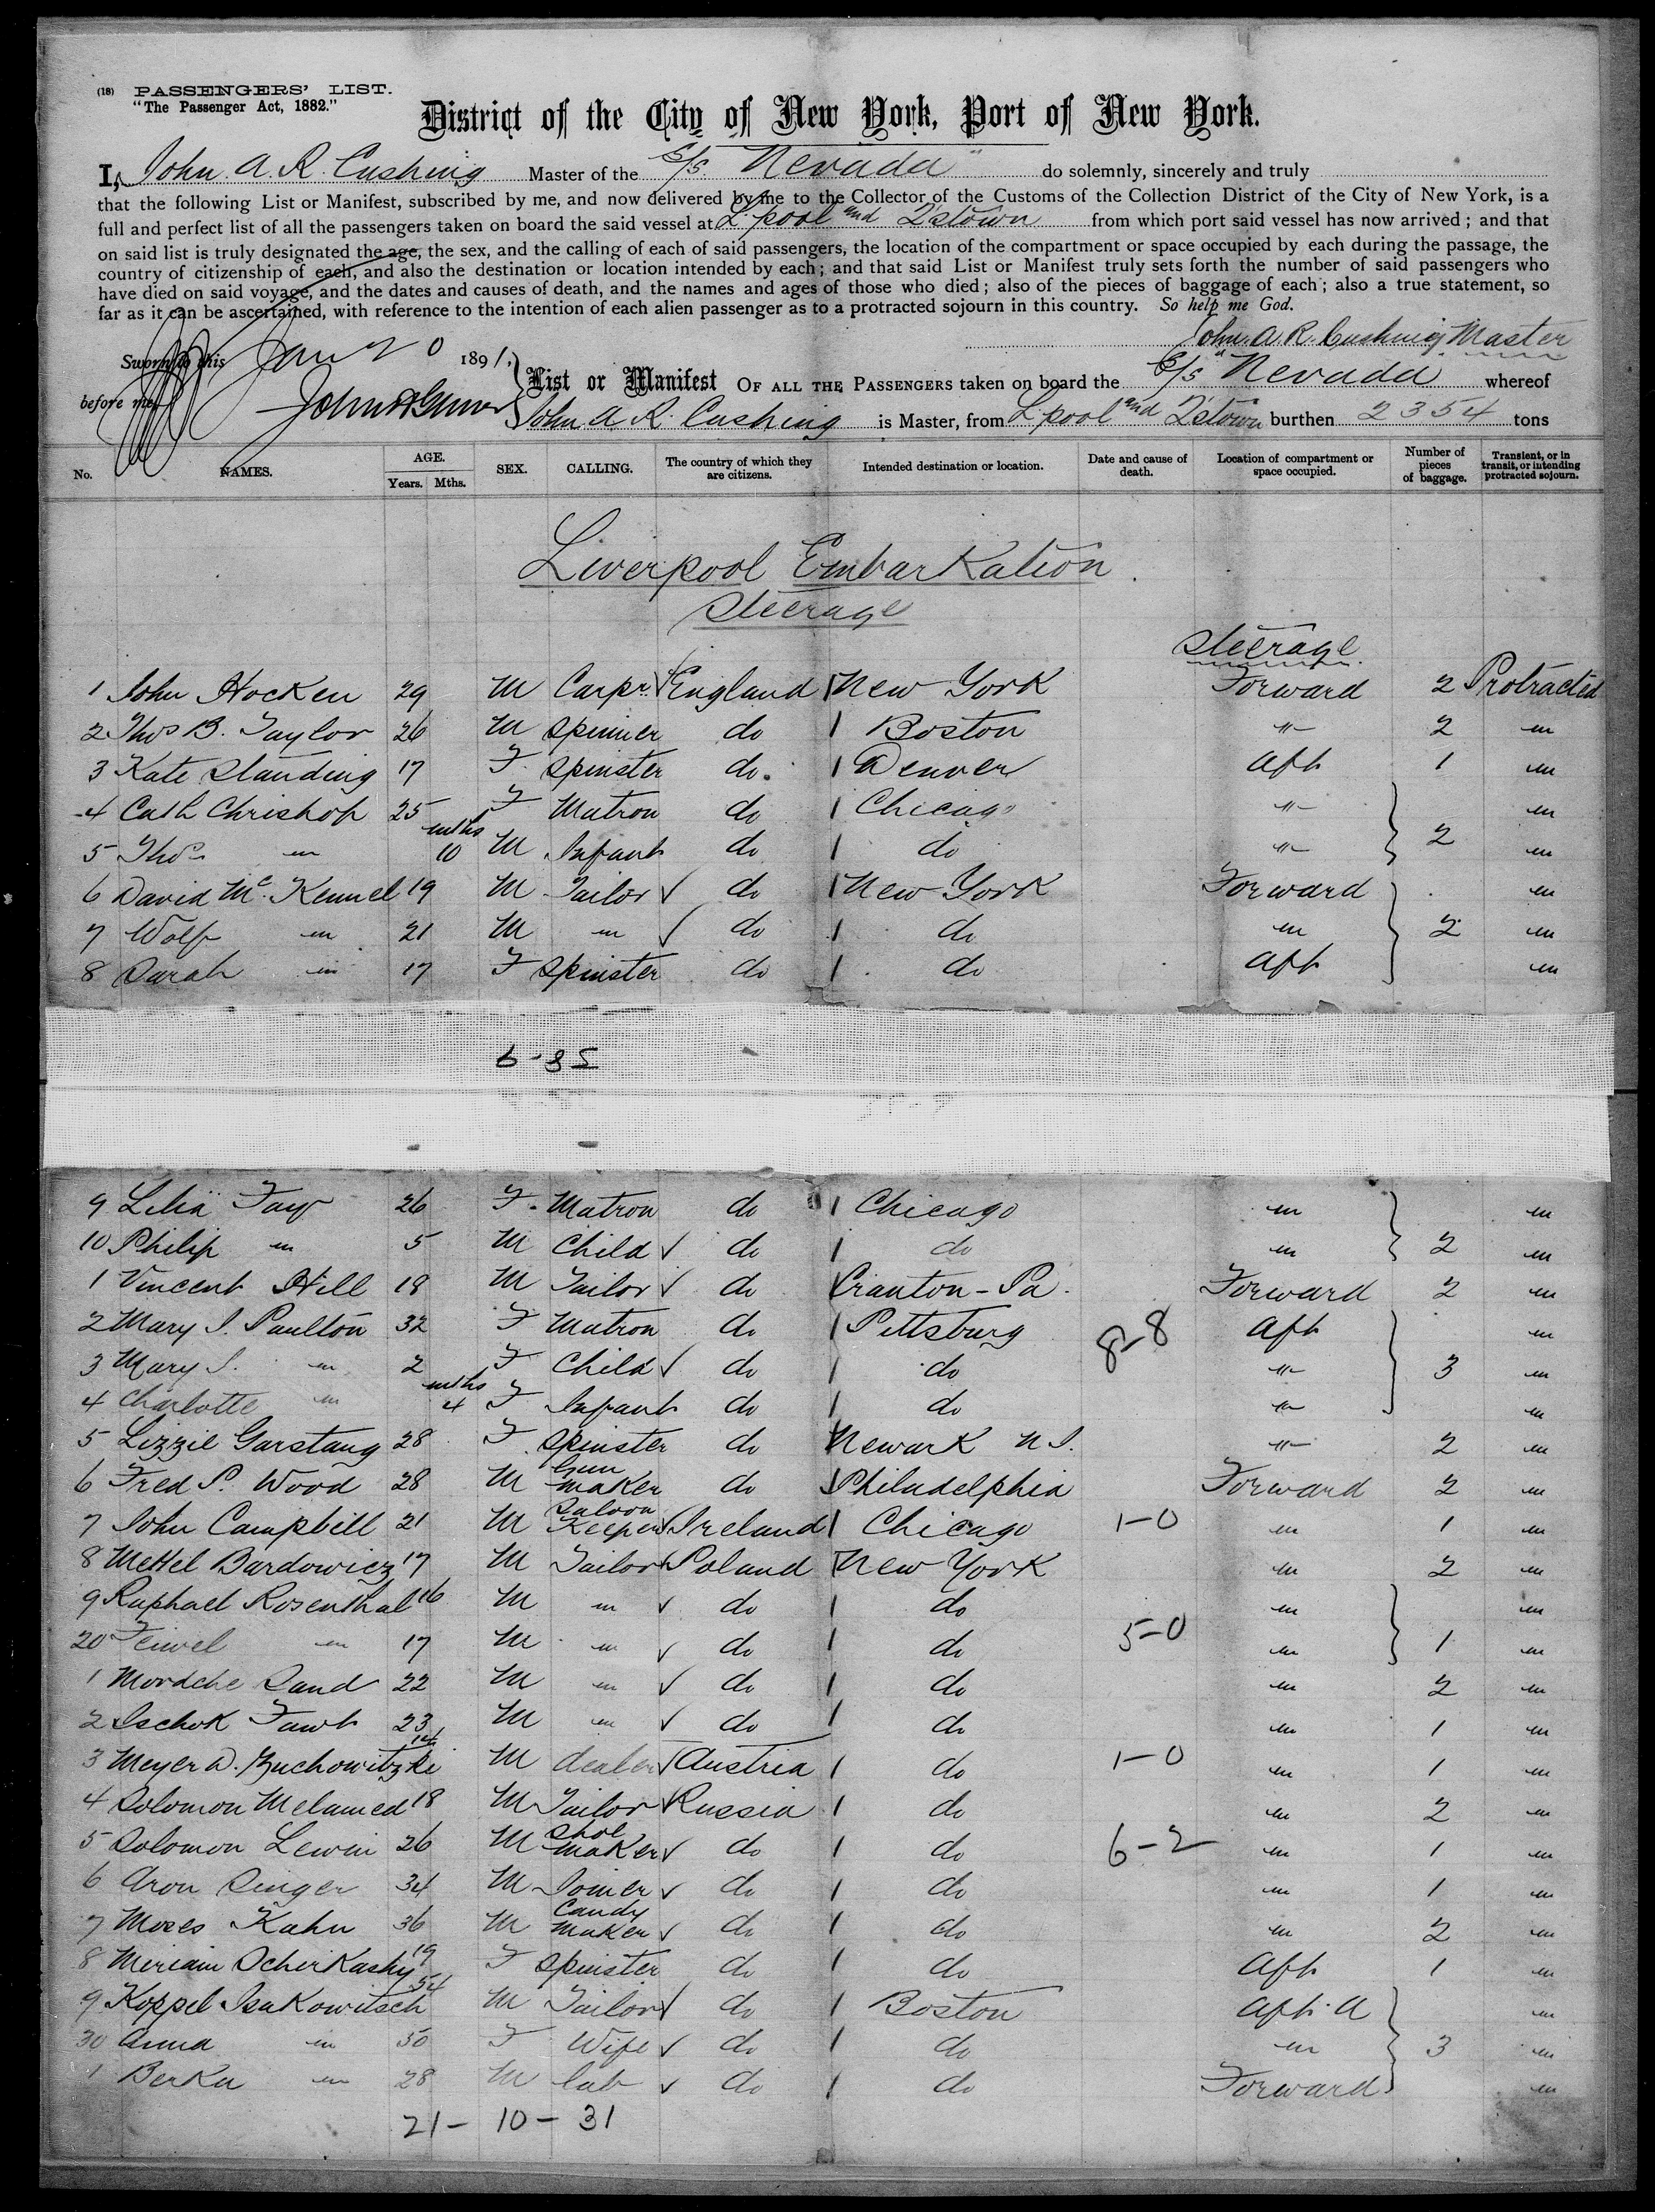 (18) PASSENGERS' LIST.
"The Passenger Act, 1882."
District of the City of New York, Port of New York.
I, John A. R. Cushing Master of the S/S. "Nevada" do solemnly, sincerely and truly
that the following List or Manifest, subscribed by me, and now delivered by me to the Collector of the Customs of the Collection District of the City of New York, is a
full and perfect list of all the passengers taken on board the said vessel at L'pool and Q'stown from which port said vessel has now arrived; and that
on said list is truly designated the age, the sex, and the calling of each of said passengers, the location of the compartment or space occupied by each during the passage, the
country of citizenship of each, and also the destination or location intended by each; and that said List or Manifest truly sets forth the number of said passengers who
have died on said voyage, and the dates and causes of death, and the names and ages of those who died; also of the pieces of baggage of each; also a true statement, so
far as it can be ascertained, with reference to the intention of each alien passenger as to a protracted sojourn in this country. So help me God.
John A. R. Cushing Master
Sworn to this Jany 20 1891,
before me,
List or Manifest OF ALL THE PASSENGERS taken on board the S/S "Nevada whereof
John A. R. Cushing is Master, from L'pool and Q'stown burthen 2354 tons
No. NAMES. AGE. Years. Mths. SEX. CALLING. The country of which they are citizens. Intended destination or location. Date and cause of death. Location of compartment or space occupied. Number of pieces of baggage. Transient, or in transit, or intending protracted sojourn.
Liverpool Embarkation
Steerage
Steerage
1 John Hocken 29 M Carpr. England New York Forward 2 Protracted
2 Thos B. Taylor 26 M Spinner do Boston " 2 "
3 Kate Standing 17 F Spinster do. Denver Aft 1 "
4 Cath Chrishop 25 F Matron do Chicago " "
5 Thos " mths 10 M Infant do do " 2 "
6 David Mc. Kennel 19 M Tailor do New York Forward "
7 Wolf " 21 M " do do " 2 "
8 Sarah " 17 F Spinster do do Aft "
6-35
9 Lilia Fay 26 F. Matron do Chicago " "
10 Philip " 5 M Child do do " 2 "
1 Vincent Hill 18 M Tailor do Cranton-Pa. Forward 2 "
2 Mary J. Paulton 32 F Matron do Pittsburg 8-8 Aft "
3 Mary J. " 2 F Child do do " 3 "
4 Charlotte " mths 4 F Infant do do " "
5 Lizzie Garstang 28 F Spinster do Newark N J. " 2 "
6 Fred P. Wood 28 M Gun maker do Philadelphia Forward 2 "
7 John Campbell 21 M Saloon Keeper Ireland Chicago 1-0 " 1 "
8 Mettel Bardowicz 17 M Tailor Poland New York " 2 "
9 Raphael Rosenthal 16 M " do do " "
20 Feiwel " 17 M " do do 5-0 " 1 "
1 Mordche Sand 22 M " do do " 2 "
2 Ischok Fawt 23 M " do do " 1 "
3 Meyer D. Zuchowitzki 14 M dealer Austria do 1-0 " 1 "
4 Solomon Melamed 18 M Tailor Russia do " 2 "
5 Solomon Lewin 26 M Shoe maker do do 6-2 " 1 "
6 Aron Singer 34 M Joiner do do " 1 "
7 Moses Kahn 36 M Candy maker do do " 2 "
8 Meriam Scherkashy 19 F Spinster do do Aft 1 "
9 Koppel Isakowitsch 54 M Tailor do Boston Aft. A "
30 Anna " 50 F Wife do do " 3 "
1 Berka " 28 M lab do do Forward "
21- 10- 31